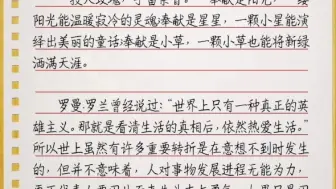 阳光能温暖寂冷的灵魂;奉献是星星,一颗小星能演
绎出美丽的童话;奉献是小草,一颗小草也能将新绿
洒满天涯。
罗曼·罗兰曾经说过:“世界上只有一种真正的英
雄主义。那就是看清生活的真相后,依然热爱生活。”
所以世上虽然有许多重要转折是在意想不到时发生
的,但并不意味着,人对事物发展进程无能为力,